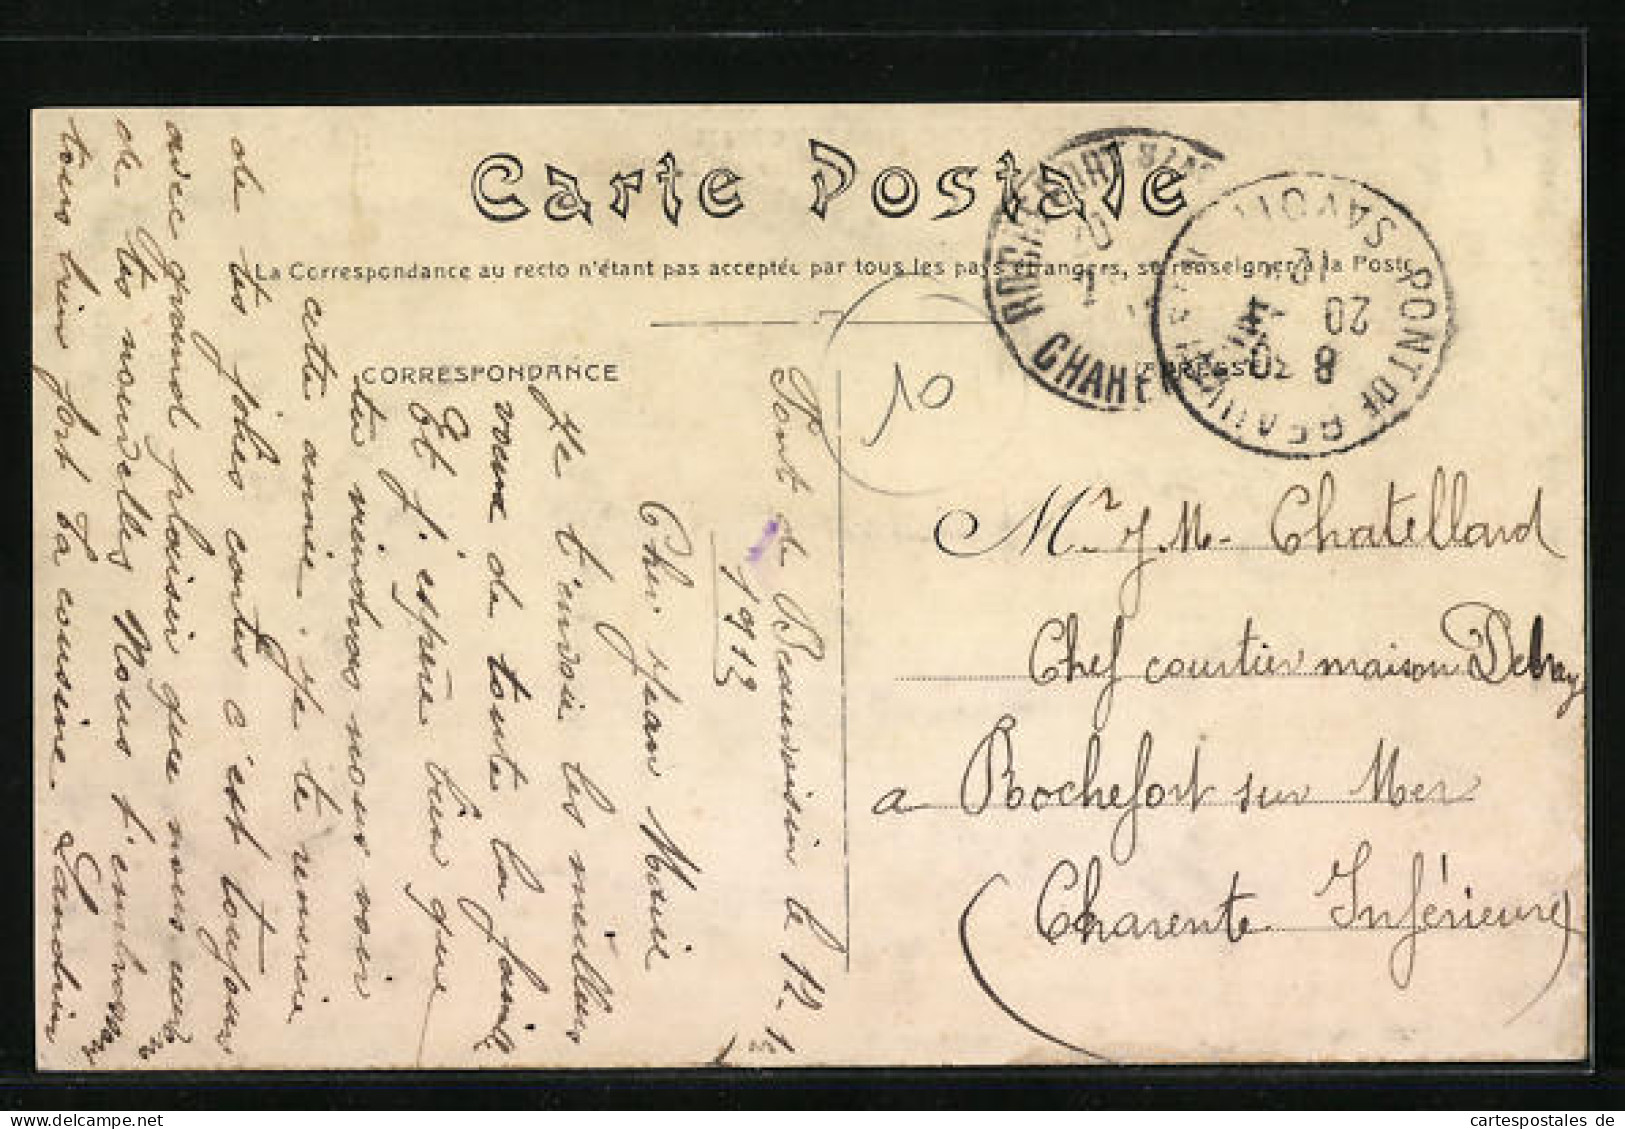 Carte Postale
La Correspondance au recto n'étant pas acceptée par tous les pays étrangers, se renseigner à la Poste
CORRESPONDANCE
ADRESSE
Pont de Beauvoisin le 12. 1
1913
Cher Jean Marie
Je t'envoie les meilleurs
voeux de toute la famille
Et j'espère bien que
tu viendras nous voir
cette année. Je te remercie
de tes jolies cartes c'est toujours
avec grand plaisir que nous
de tes nouvelles Nous t'embrassons
tous bien fort ta cousine.
10
Mr J. M. Chatellard
Chef courtier maison Debray
a Rochefort sur Mer
(Charente Inférieure)
PONT DE BEAUVOISIN
SAVOIE
8
20
12
ROCHEFORT
cartespostales de